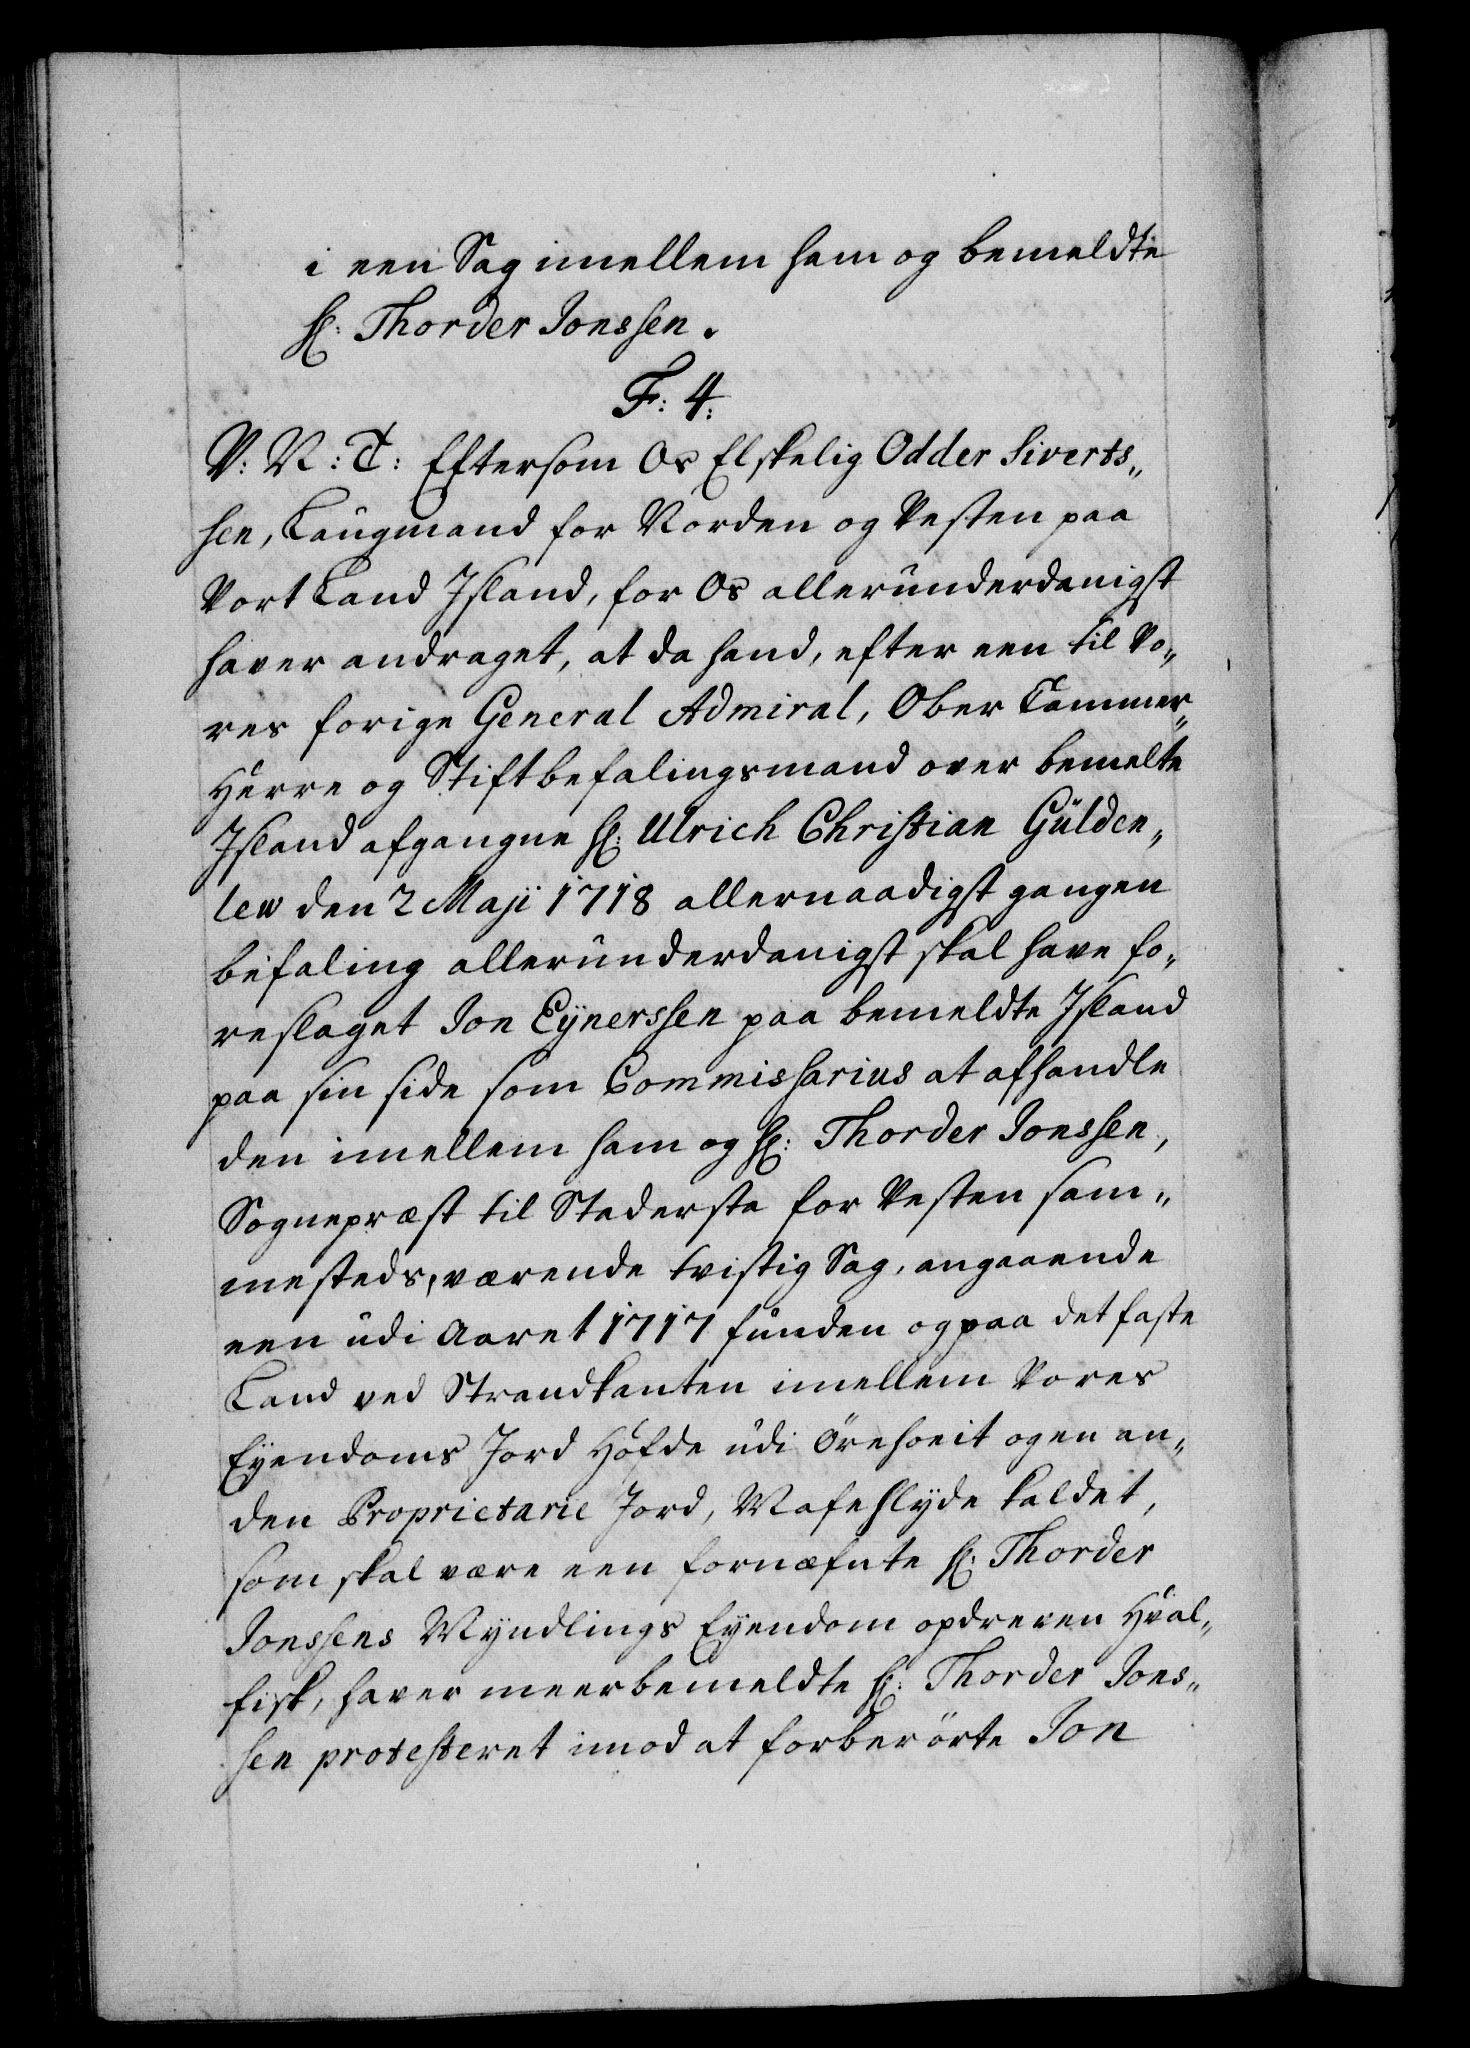 i een Sag imellem ham og bemeldte
Hr: Thorder Jonssen.
F: 4:
V: V: T: Eftersom Os Elskelig Odder Siverts„
sen, Laugmand for Norden og Vesten paa
Vort Land Jsland, for Os allerunderdanigst
haver andraget, at da hand, efter een til Vo„
res forige General Admiral, Ober Cammer„
Herre og Stiftbefalingsmand over bemelte
Jsland afgangne Hr: Ulrich Christian Gülden„
lew den 2 Maji 1718 allernaadigst gangen
befaling allerunderdanigst skal have fo„
reslaget Jon Eÿnerssen paa bemeldte Jsland
paa sin side som Commissarius at afhandle
den imellem ham og Hr: Thorder Jonssen,
Sognepræst til Stadersta for Vesten sam„
mesteds, værende tvistig Sag, angaaende
een udi Aaret 1717 funden og paa det faste
Land ved Strandkanten imellem Vores
Eÿendoms Jord Höfde udi Örehoeit og en an„
den Proprietarie Jord, Mafehlyde kaldet,
som skal være een fornæfnte Hr: Thorder
Jonssens Myndlings Eyendom opdreven Hval„
fisk, haver meerbemeldte Hr: Thorder Jons„
sen protesteret imod at forberörte Jon